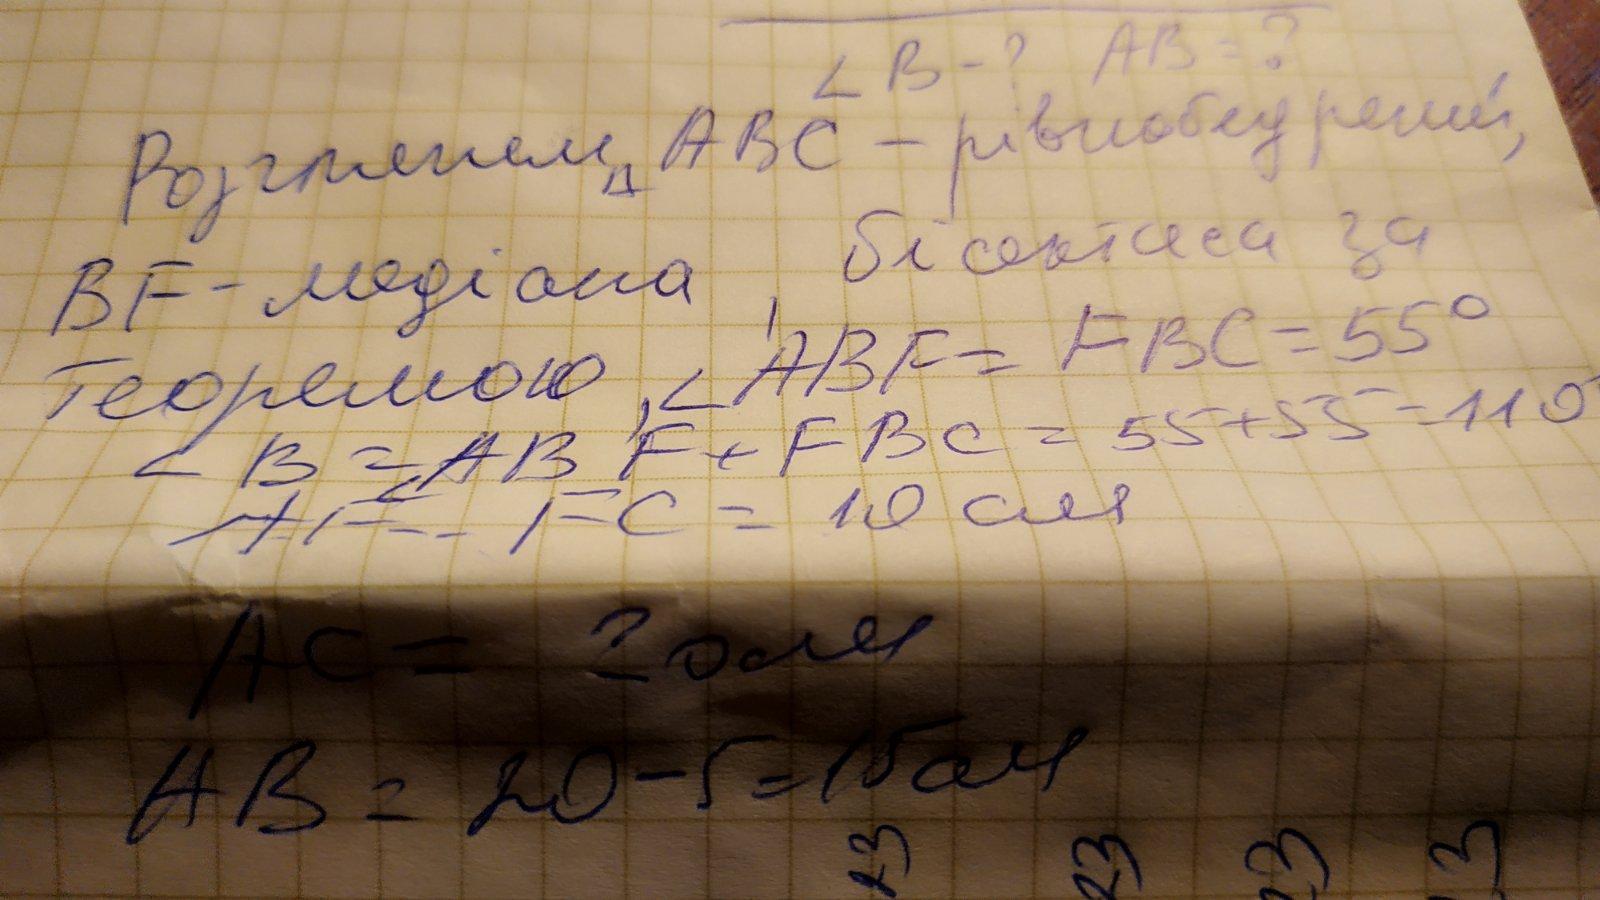 ∠B-? AB=?
Розглянем △ABC - рівнобедрений,
BF-медіана, бісектиса за
теоремою, ∠ABF = FBC = 55°
∠B = ∠ABF + FBC = 55+55=110°
AF = FC = 10 см
AC = 20 см
AB = 20-5=15 см
23 23 23 23